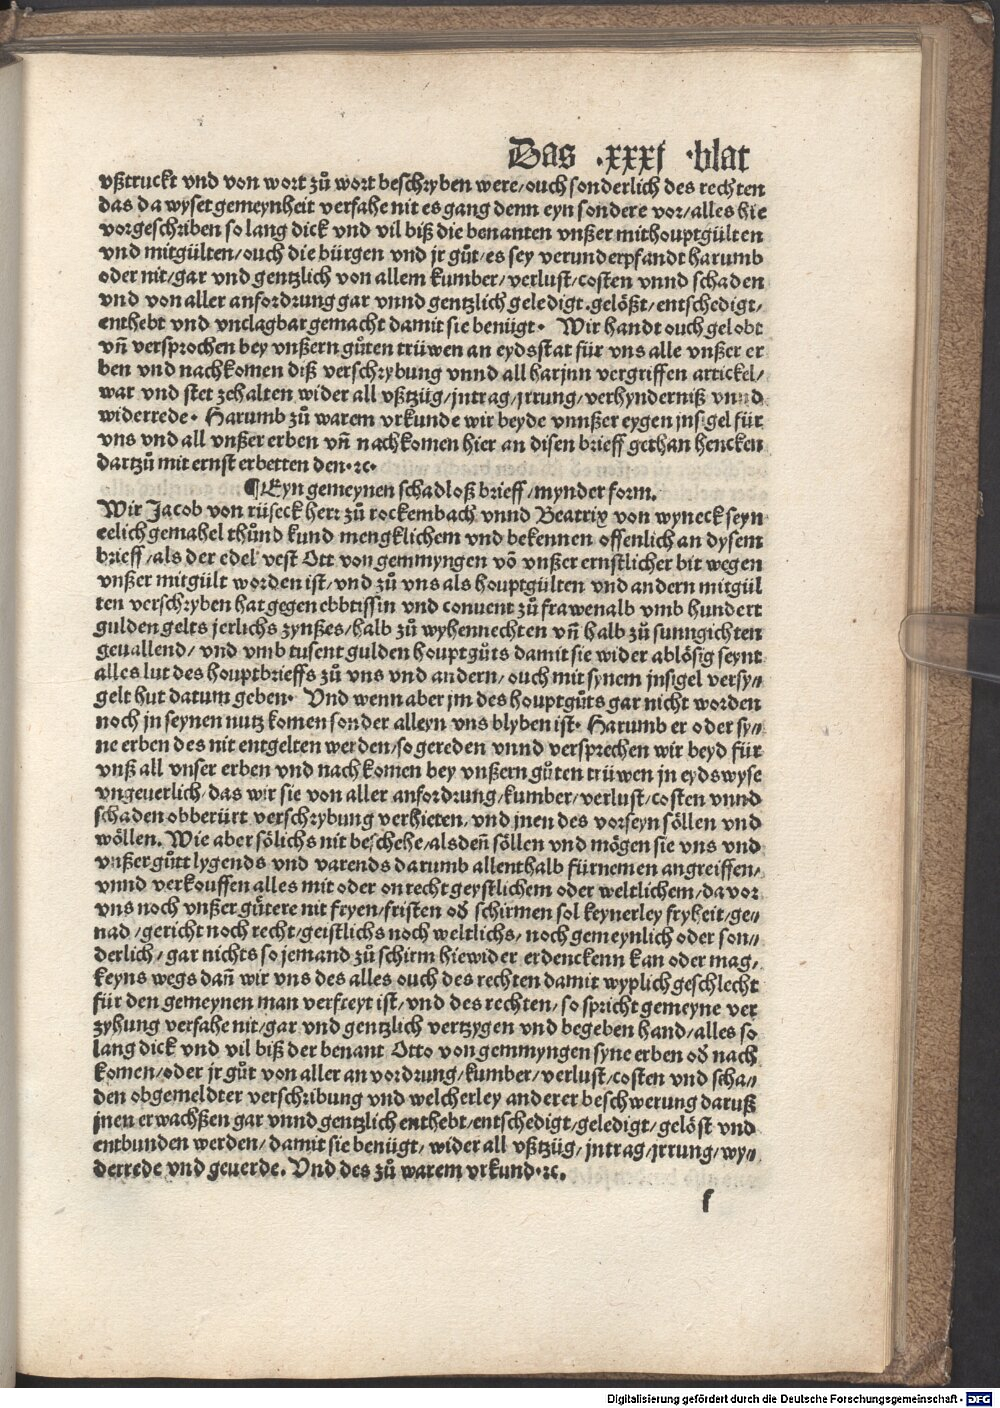 Das .xxxj .blat
vßtruckt vnd von wort zů wort beschryben were/ouch sonderlich des rechten
das da wyset gemeynheit verfahe nit es gang denn eyn sondere vor/alles hie
vorgeschriben so lang dick vnd vil biß die benanten vnßer mithouptgülten
vnd mitgülten/ouch die bürgen vnd jr gůt/es sey verunderpfandt harumb
oder nit/gar vnd gentzlich von allem kumber/verlust/costen vnnd schaden
vnd von aller anfordrung gar vnnd gentzlich geledigt.gelößt/entschedigt/
enthebt vnd vnclagbar gemacht damit sie benügt. Wir handt ouch gelobt
vn̄ versprochen bey vnßern gůten trüwen an eydsstat für vns alle vnßer er
ben vnd nachkomen diß verschrybung vnnd all harjnn vergriffen artickel/
war vnd stet zehalten wider all vßtzüg/jntrag/jrrung/verhynderniß vnnd
widerrede. Harumb zů warem vrkunde wir beyde vnnßer eygen jnsigel für
vns vnd all vnßer erben vn̄ nachkomen hier an disen brieff gethan hencken
dartzů mit ernst erbetten den.ꝛc.
¶Eyn gemeynen schadloß brieff/mynder form.
Wir Jacob von rüseck herr zů rockembach vnnd Beatrix von wyneck seyn
eelich gemahel thůnd kund mengklichem vnd bekennen offenlich an dysem
brieff/als der edel vest Ott von gemmyngen vō vnßer ernstlicher bit wegen
vnßer mitgült worden ist/vnd zů vns als houptgülten vnd andern mitgül
ten verschryben hat gegen ebbtissin vnd conuent zů frawenalb vmb hundert
gulden gelts jerlichs zynßes/halb zů wyhennechten vn̄ halb zů sunngichten
geuallend/vnd vmb tusent gulden houptgůts damit sie wider ablösig seynt
alles lut des houptbrieffs zů vns vnd andern/ouch mit synem jnsigel versy⸗
gelt hut datum geben. Vnd wenn aber jm des houptgůts gar nicht worden
noch jn seynen nutz komen sonder alleyn vns blyben ist. Harumb er oder sy⸗
ne erben des nit entgelten werden/so gereden vnnd versprechen wir beyd für
vnß all vnser erben vnd nachkomen bey vnßern gůten trüwen jn eydswyse
vngeuerlich/das wir sie von aller anfordrung/kumber/verlust/costen vnnd
schaden obberürt verschrybung verhieten/vnd jnen des vorseyn söllen vnd
wöllen. Wie aber sölichs nit beschehe/alsden̄ söllen vnd mögen sie vns vnd
vnßer gůtt lygends vnd varends darumb allenthalb fürnemen angreiffen/
vnnd verkouffen alles mit oder on recht geystlichem oder weltlichem/da vor
vns noch vnßer gůtere nit fryen/fristen od̄ schirmen sol keynerley fryheit/ge⸗
nad/gericht noch recht/geistlichs noch weltlichs/noch gemeynlich oder son⸗
derlich/gar nichts so jemand zů schirm hiewider erdenckenn kan oder mag/
keyns wegs dan̄ wir vns des alles ouch des rechten damit wyplich geschlecht
für den gemeynen man verfreyt ist/vnd des rechten/so spricht gemeyne ver
zyhung verfahe nit/gar vnd gentzlich vertzygen vnd begeben hand/alles so
lang dick vnd vil biß der benant Otto von gemmyngen syne erben od̄ nach
komen/oder jr gůt von aller anvordrung/kumber/verlust/costen vnd scha⸗
den obgemeldter verschribung vnd welcherley anderer beschwerung daruß
jnen erwachßen gar vnnd gentzlich enthebt/entschedigt/geledigt/gelöst vnd
entbunden werden/damit sie benügt/wider all vßtzüg/jntrag/jrrung/wy⸗
derrede vnd geuerde. Vnd des zů warem vrkund.ꝛc.
f
Digitalisierung gefördert durch die Deutsche Forschungsgemeinschaft - DFG